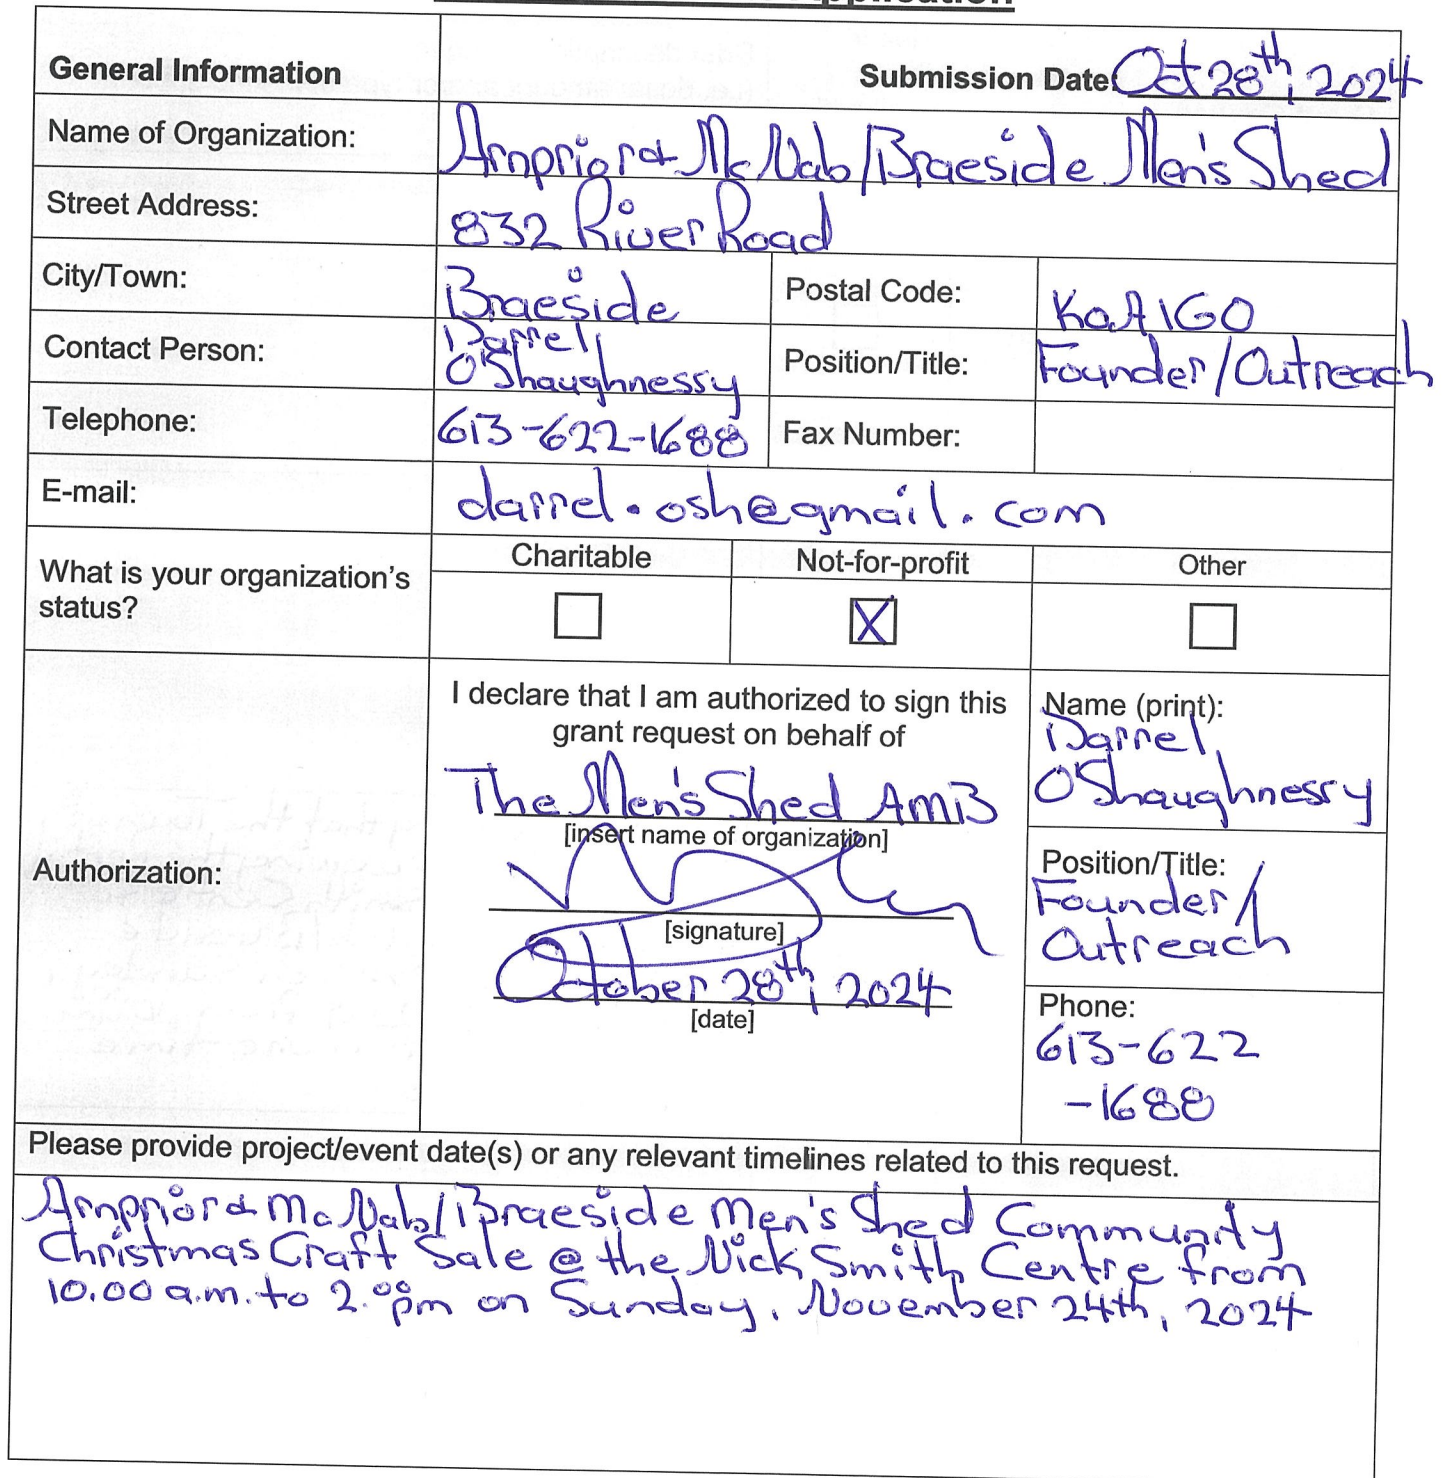 General Information
Submission Date: Oct 28th, 2024
Name of Organization: Arnprior & McNab/Braeside Men's Shed
Street Address: 832 River Road
City/Town: Braeside Postal Code: K0A1G0
Contact Person: Darrel
O'Shaughnessy Position/Title: Founder/Outreach
Telephone: 613-622-1688 Fax Number:
E-mail: darrel.osh@gmail.com
What is your organization's
status?
Charitable Not-for-profit Other
X
Authorization:
I declare that I am authorized to sign this
grant request on behalf of
The Men's Shed AMB
[insert name of organization]
[signature]
October 28th, 2024
[date]
Name (print):
Darrel
O'Shaughnessy
Position/Title:
Founder/
Outreach
Phone:
613-622
-1688
Please provide project/event date(s) or any relevant timelines related to this request.
Arnprior & McNab/Braeside Men's Shed Community
Christmas Craft Sale @ the Nick Smith Centre from
10.00 a.m. to 2.00 pm on Sunday, November 24th, 2024